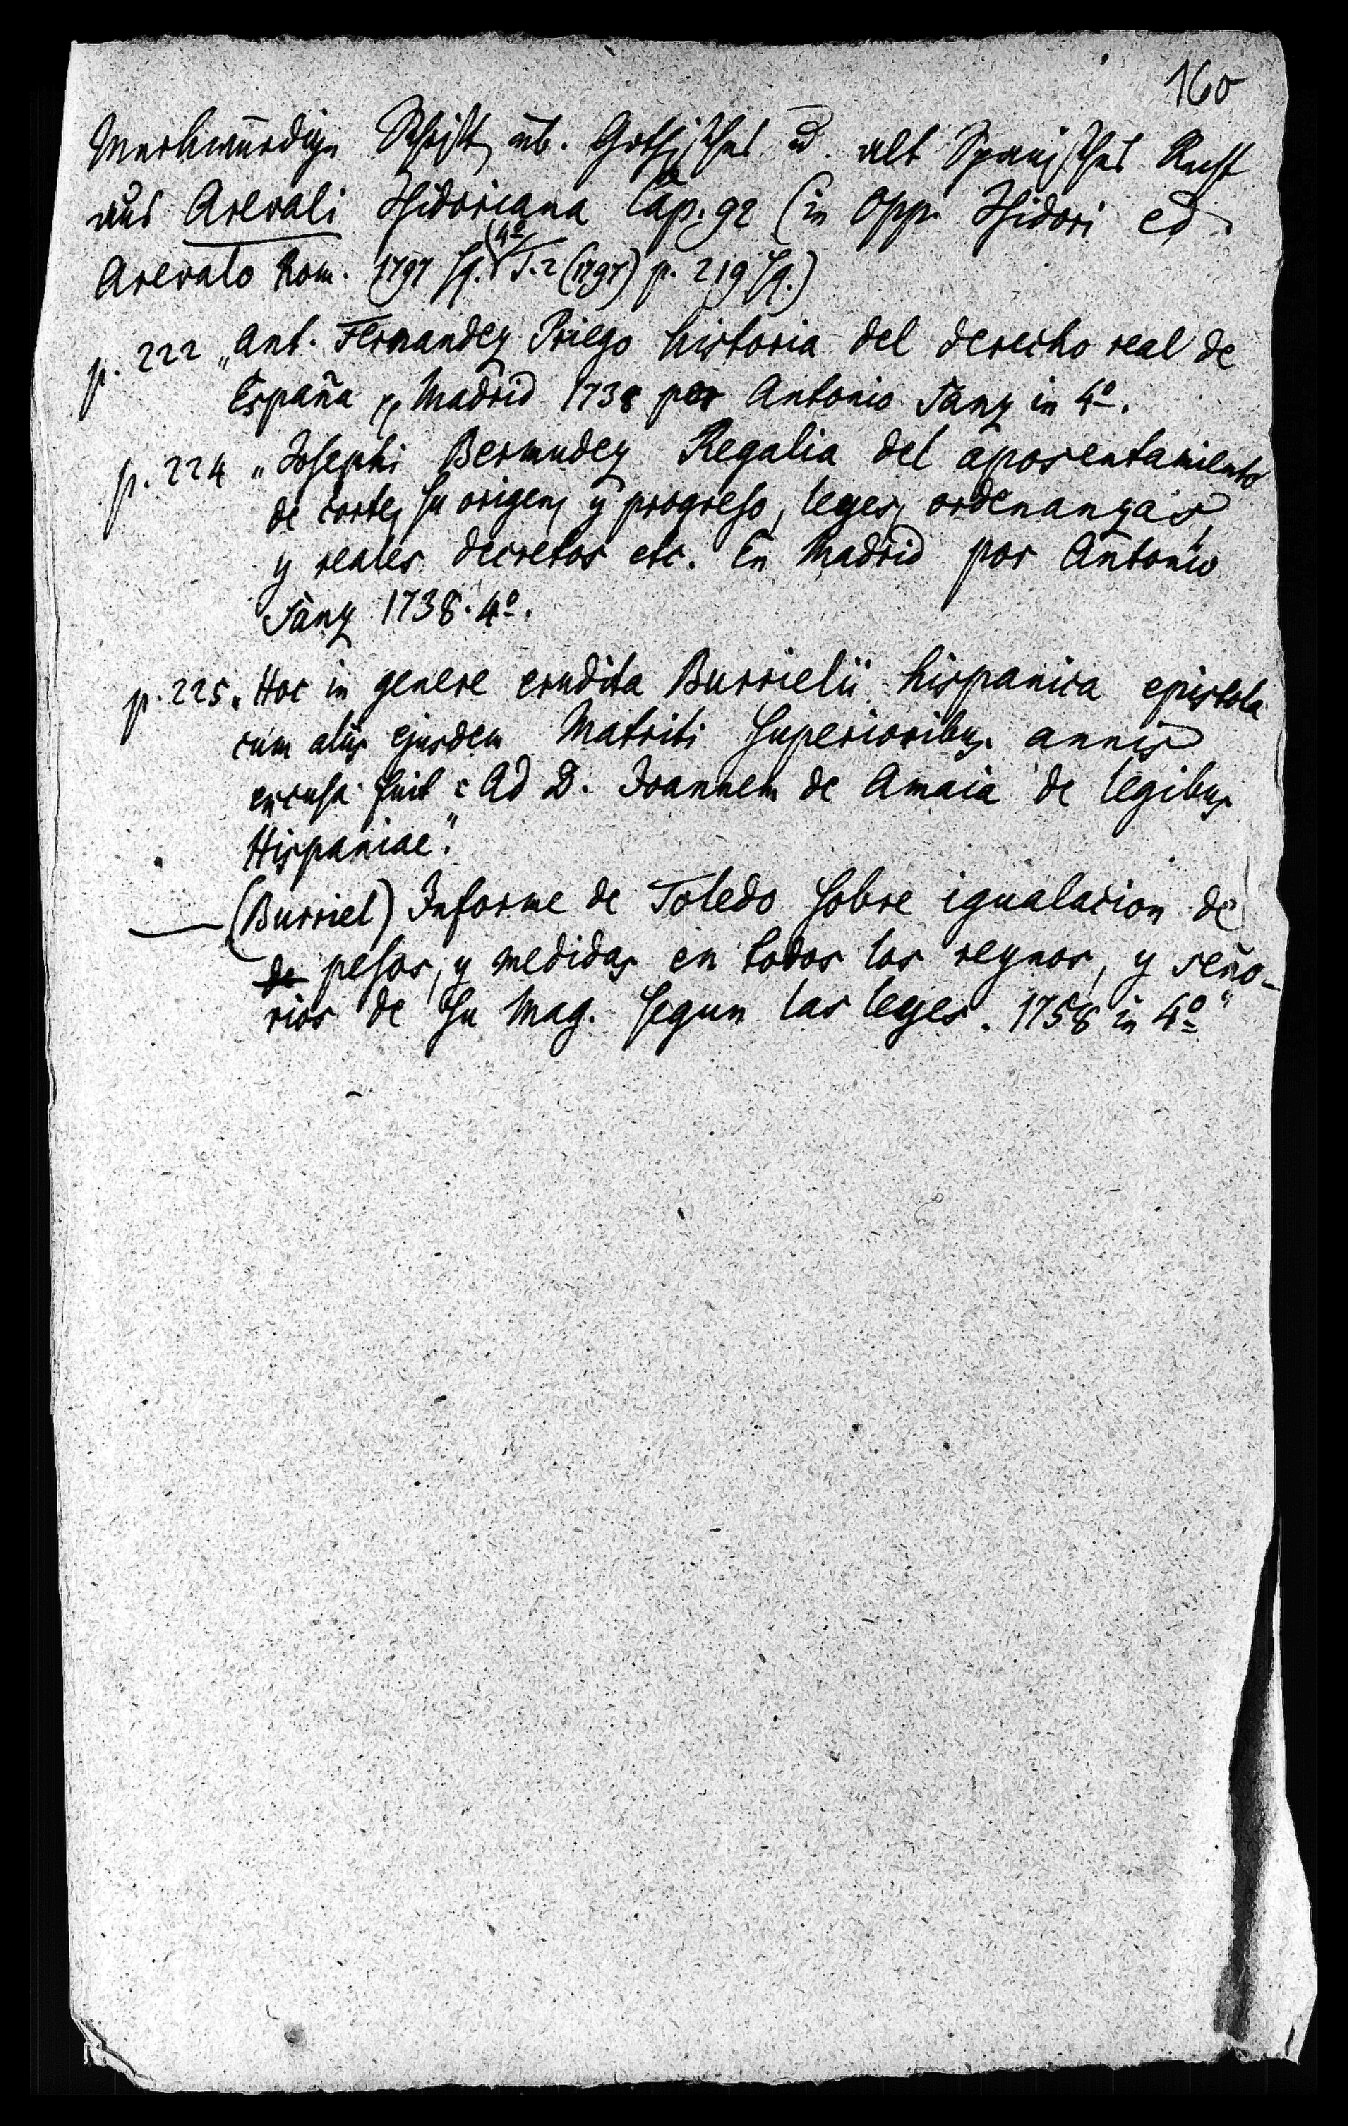 160
Merkwürdige Schrift üb. Gothisches u. alt Spanisches Recht
aus Arevali Isidoriana Cap. 92 (in Opp. Isidori ed.
Arevalo Rom. 1797 sq. 4º T. 2 (1797) p. 219 sq.)
p. 222 „Ant. Fernandez Priego historia del derecho real de
España „ Madrid 1738 por Antonio Sanz in 4º.
p. 224 „Josephi Bermudez Regalia del aposentamiento
de corte, su origen, y progreso, leyes, ordenanzas,
y reales decretos etc. En Madrid por Antonio
Sanz 1738. 4º.
p. 225 „Hoc in genere erudita Burrielii hispanica epistola
cum aliis ejusdem Matriti superioribus annis
excusa fuit: Ad D. Joannem de Amaia de legibus
Hispaniae".
— (Burriel) Informe de Toledo sobre igualacion de
de pesos, y medidas en todos los reynos, y seño-
rios de su Mag. segun las leyes. 1758 in 4º"